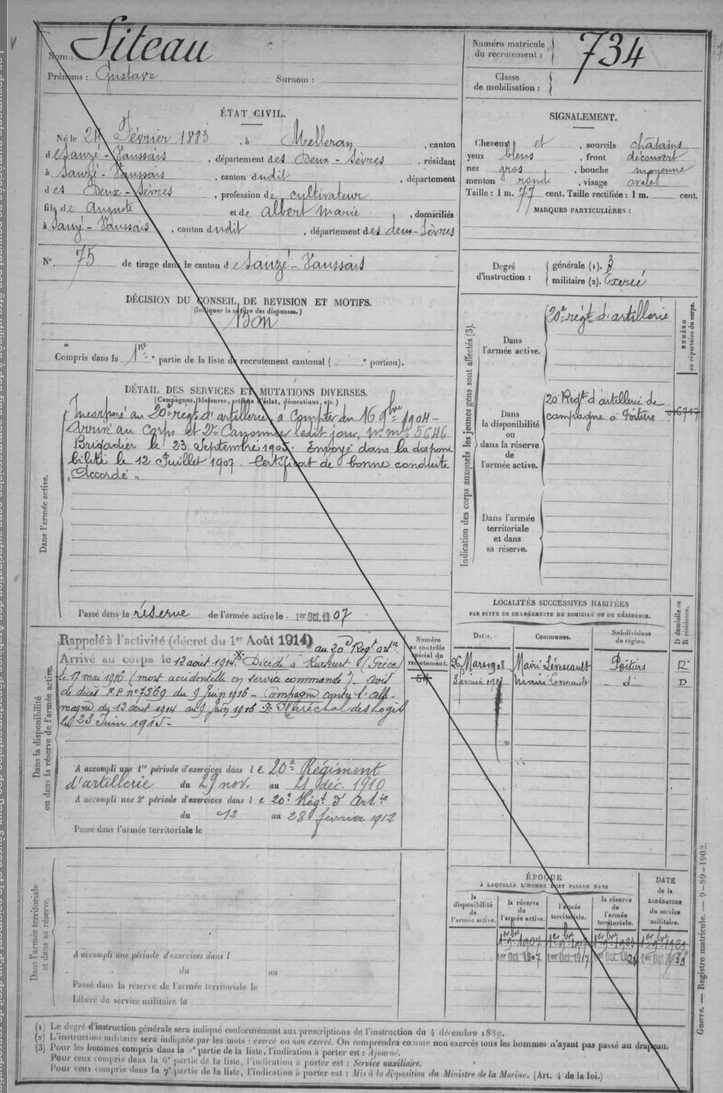 Nom : Siteau
Prénoms : Gustave Surnom :
Numéro matricule du recrutement : 734
Classe de mobilisation :
ÉTAT CIVIL.
Né le 24 Février 1883, à Melleran, canton
de Sauzé-Vaussais, département des Deux-Sèvres, résidant
à Sauzé-Vaussais, canton dudit, département
des Deux-Sèvres, profession de cultivateur
fils de Auguste et de Albert Marie, domiciliés
à Sauzé-Vaussais, canton dudit, département des deux-Sèvres
N° 75 de tirage dans le canton de Sauzé-Vaussais
SIGNALEMENT.
Cheveux et, sourcils châtains
yeux bleus, front découvert
nez gros, bouche moyenne
menton ronde, visage ovale
Taille : 1 m. 77 cent. Taille rectifiée : 1 m. cent.
MARQUES PARTICULIÈRES :
Degré d'instruction : générale (1). 3
militaire (2). Exercé
DÉCISION DU CONSEIL DE REVISION ET MOTIFS.
(Indiquer la nature des dispenses.)
Bon
Compris dans la 1re partie de la liste de recrutement cantonal ( portion).
DÉTAIL DES SERVICES ET MUTATIONS DIVERSES.
(Campagnes, blessures, actions d'éclat, décorations, etc.)
Dans l'armée active.
Incorporé au 20e régt d'artillerie à Compter du 16 9bre 1904 -
Arrivé au corps et 2e Canonnier ledit jour, no mle 5646
Brigadier le 23 Septembre 1905. Envoyé dans la disponi
bilité le 12 Juillet 1907 Certificat de bonne conduite
"Accordé"
Passé dans la réserve de l'armée active le 1er Oct. 19 07
Indication des corps auxquels les jeunes gens sont affectés (3).
NUMÉRO au répertoire du corps.
Dans l'armée active.
20e régt d'artillerie
Dans la disponibilité ou dans la réserve de l'armée active.
20 Regt d'artillerie de
campagne à Poitiers
Dans l'armée territoriale et dans sa réserve.
Dans la disponibilité ou dans la réserve de l'armée active.
Rappelé à l'activité (décret du 1er Août 1914) au 20e Regt artie
Arrivé au corps le 12 août 1914. Décédé à (Grèce)
le 17 mai 1916 (mort accidentelle en service commandé). avis
de décès du 9 Juin 1916 - Campagne contre l'Alle-
magne du 12 août 1914 au 9 Juin 1916 Maréchal des logis
le 23 Juin 1915 -
Numéro au contrôle spécial du recrutement.
A accompli une 1re période d'exercices dans le 20e Régiment
d'artillerie du 29 nov. au 21 déc. 1910
A accompli une 2e période d'exercices dans le 20e Régt d'Artie
du 12 au 28 février 1912
Passé dans l'armée territoriale le
LOCALITÉS SUCCESSIVES HABITÉES
PAR SUITE DE CHANGEMENTS DE DOMICILE OU DE RÉSIDENCE.
Dates. Communes. Subdivisions de région. D domicile ou R résidence.
26 Mars 1908 Mairé Lévescault Poitiers R
Mairé Levescault do D
Dans l'armée territoriale et dans sa réserve.
A accompli une période d'exercices dans l
du au
Passé dans la réserve de l'armée territoriale le
Libéré du service militaire le
ÉPOQUE
À LAQUELLE L'HOMME DOIT PASSER DANS
la disponibilité de l'armée active. la réserve de l'armée active. l'armée territoriale. la réserve de l'armée territoriale.
DATE de la LIBÉRATION du service militaire.
1er Oct. 1907 1er Oct. 1917
Guerre. — Registre matricule. — 9-89-1902.
(1) Le degré d'instruction générale sera indiqué conformément aux prescriptions de l'instruction du 4 décembre 1889.
(2) L'instruction militaire sera indiquée par les mots : exercé ou non exercé. On comprendra comme non exercés tous les hommes n'ayant pas passé au drapeau.
(3) Pour les hommes compris dans la 2e partie de la liste, l'indication à porter est : Ajourné.
Pour ceux compris dans la 6e partie de la liste, l'indication à porter est : Service auxiliaire.
Pour ceux compris dans la 7e partie de la liste, l'indication à porter est : Mis à la disposition du Ministre de la Marine. (Art. 4 de la loi.)